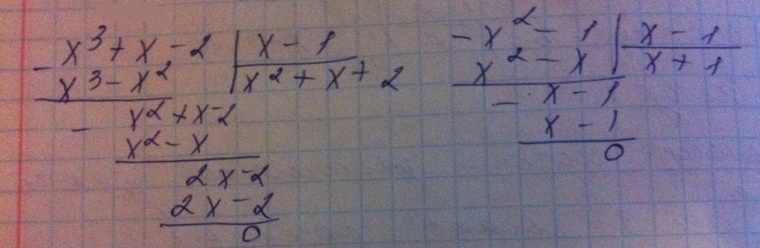 - x³ + x - 2 | x - 1
x³ - x² | x² + x + 2
- x² + x - 2
x² - x
2x - 2
2x - 2
0
- x² - 1 | x - 1
x² - x | x + 1
- x - 1
x - 1
0